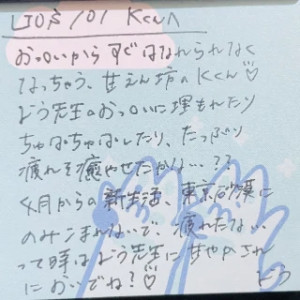 Kくん
おっぱいから すぐはなれられなく
なっちゃう、甘えん坊のKくん♡
よう先生のおっぱいに埋もれたり
ちゅぱちゅぱしたり、たっぷり
疲れを癒やせたかな…??
4月からの新生活、東京砂漠に
のみこまれないで、疲れたな…
って時はよう先生に甘やかされ
においでね?♡